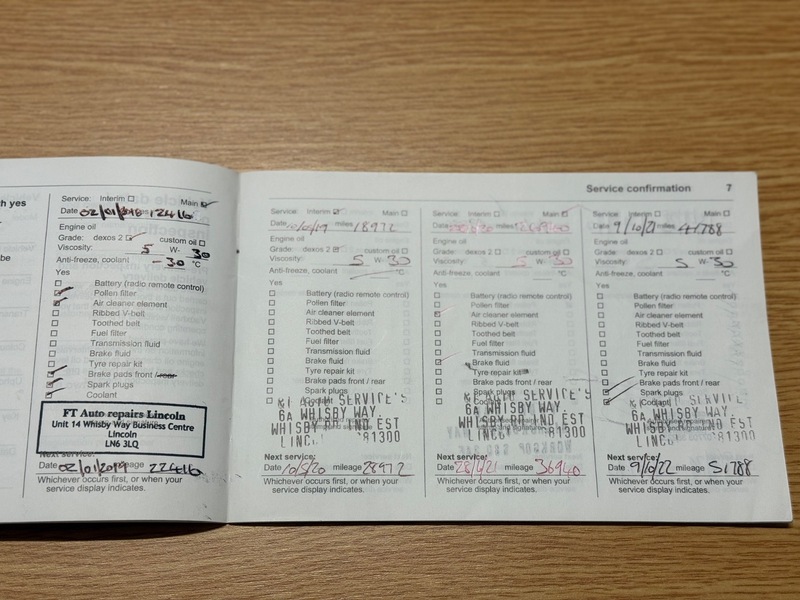 th yes
be
Service: Interim Main
Date 02/01/2018 miles 12416
Engine oil
Grade: dexos 2 custom oil
Viscosity: 5 W- 30
Anti-freeze, coolant -30 °C
Yes
Battery (radio remote control)
Pollen filter
Air cleaner element
Ribbed V-belt
Toothed belt
Fuel filter
Transmission fluid
Brake fluid
Tyre repair kit
Brake pads front / rear
Spark plugs
Coolant
FT Auto repairs Lincoln
Unit 14 Whisby Way Business Centre
Lincoln
LN6 3LQ
Next service:
Date 02/01/2019 22416
Whichever occurs first, or when your
service display indicates.
Service confirmation 7
Service: Interim Main
Date miles 18972
Engine oil
Grade: dexos 2 custom oil
Viscosity: 5 W- 30
Anti-freeze, coolant °C
Yes
Battery (radio remote control)
Pollen filter
Air cleaner element
Ribbed V-belt
Toothed belt
Fuel filter
Transmission fluid
Brake fluid
Tyre repair kit
Brake pads front / rear
Spark plugs
Coolant
AUTO SERVICE'S
6A WHISBY WAY
WHISBY RD IND EST
LINC 81300
Next service:
Date 10/5/20 mileage 28972
Whichever occurs first, or when your
service display indicates.
Service: Interim Main
Date miles
Engine oil
Grade: dexos 2 custom oil
Viscosity: 5 W- 30
Anti-freeze, coolant °C
Yes
Battery (radio remote control)
Pollen filter
Air cleaner element
Ribbed V-belt
Toothed belt
Fuel filter
Transmission fluid
Brake fluid
Tyre repair kit
Brake pads front / rear
Spark plugs
Coolant
AUTO SERVICE'S
6A WHISBY WAY
WHISBY RD IND EST
LINC 81300
Next service:
Date 28/1/21 mileage 36940
Whichever occurs first, or when your
service display indicates.
Service: Interim Main
Date 9/10/21 miles 41788
Engine oil
Grade: dexos 2 custom oil
Viscosity: 5 W- 30
Anti-freeze, coolant °C
Yes
Battery (radio remote control)
Pollen filter
Air cleaner element
Ribbed V-belt
Toothed belt
Fuel filter
Transmission fluid
Brake fluid
Tyre repair kit
Brake pads front / rear
Spark plugs
Coolant
AUTO SERVICE'S
6A WHISBY WAY
WHISBY RD IND EST
LINC 81300
Next service:
Date 9/10/22 mileage 51788
Whichever occurs first, or when your
service display indicates.